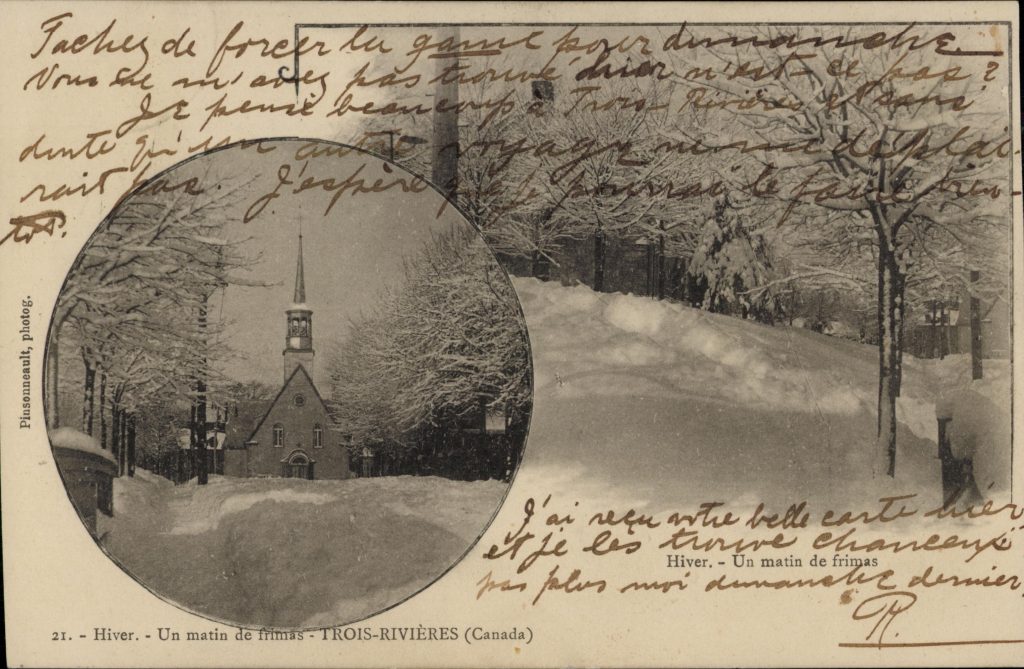 Tachez de forcer la game pour dimanche.
Vous ne m'avez pas trouvé hier n'est-ce pas?
Je pense beaucoup à Trois-Rivières et sans
doute qu'un autre voyage ne me déplai-
rait pas. J'espère que je pourrai le faire bien-
tôt.
Pinsonneault, photog.
J'ai reçu votre belle carte hier
et je les trouve chanceux
Hiver. - Un matin de frimas
pas plus moi dimanche dernier,
R.
21. - Hiver. - Un matin de frimas - TROIS-RIVIÈRES (Canada)